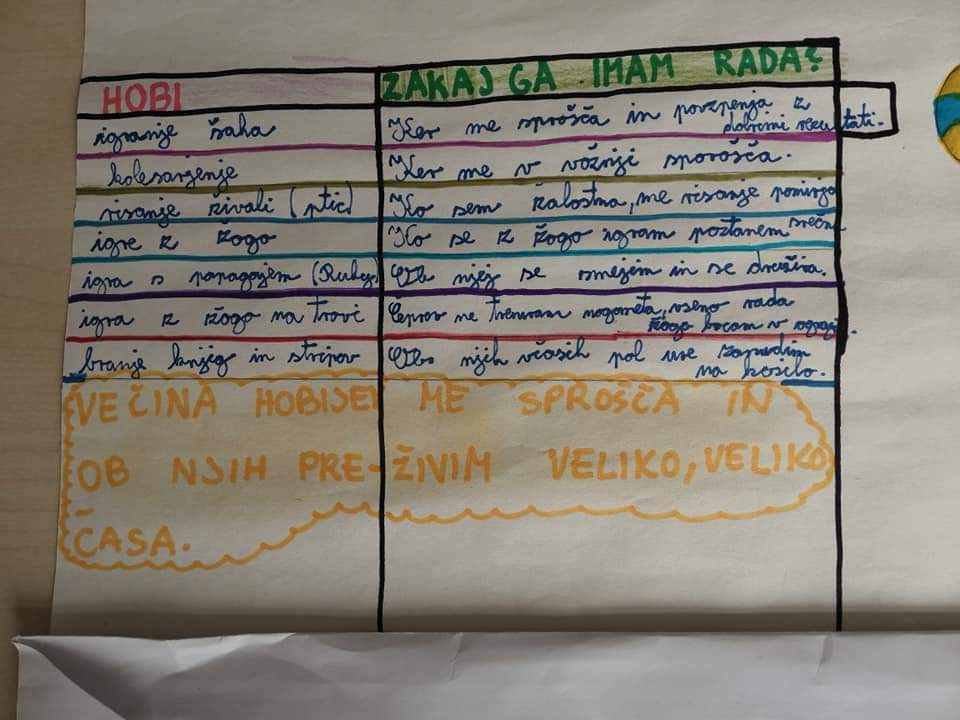 HOBI ZAKAJ GA IMAM RADA?
igranje šaha Ker me sprošča in povzpenja z
dobrimi rezultati.
kolesarjenje Ker me v vožnji sporošča.
risanje živali (ptic) Ko sem žalostna, me risanje pomirja
igre z žogo Ko se z žogo igram postanem srečna
igra s papagajem (Ruby) Ob njej se smejem in se družim.
igra z žogo na travi Čeprav ne treniram nogometa, vseno rada
žogo brcam v
branje knjig in stripov Ob njih včasih pol ure zamudim
na kosilo.
VEČINA HOBIJEV ME SPROŠČA IN
OB NJIH PRE-ŽIVIM VELIKO, VELIKO
ČASA.